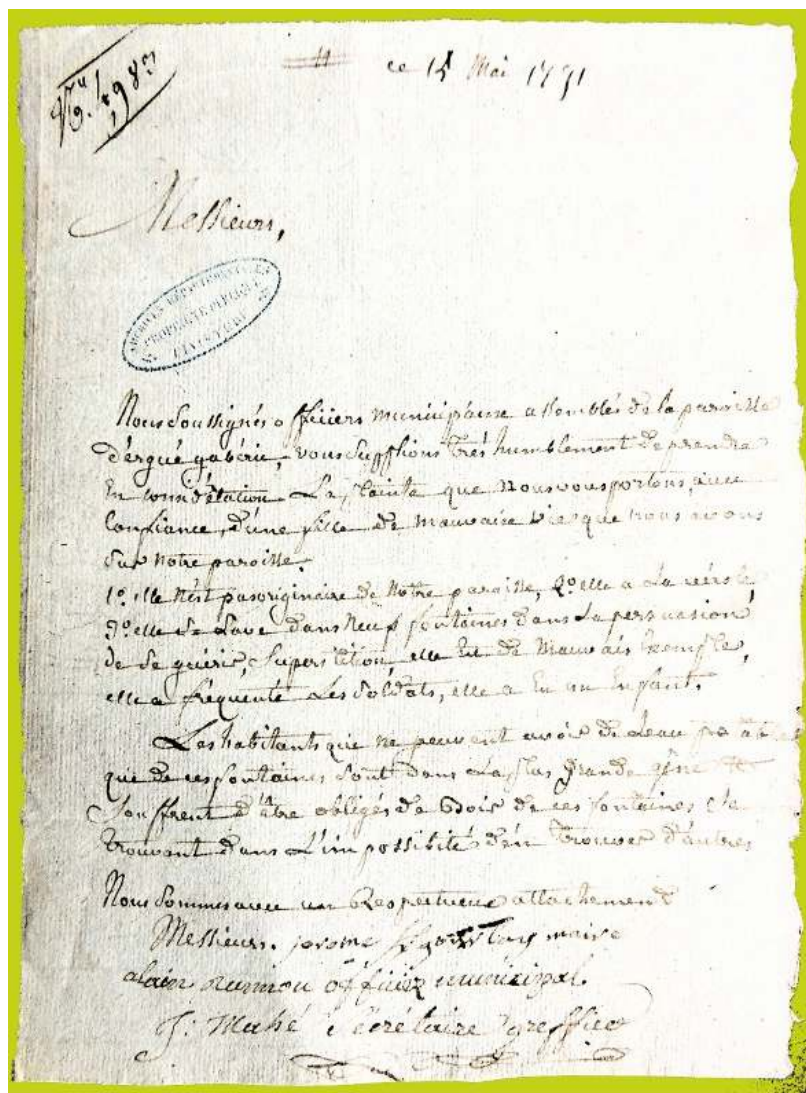 ce 15 Mai 1791
Messieurs,
ARCHIVES DÉPARTEMENTALES
PROPRIÉTÉ PUBLIQUE
FINISTÈRE
Nous Soussignés officiers municipaux assemblés de la paroisse
d'ergué gabéric, vous Supplions très humblement de prendre
En considération La plainte que Nous vous portons, avec
Confiance, d'une fille de mauvaise vie que nous avons
Sur Notre paroisse.
1º. elle N'est pas originaire de Notre paroisse, 2º. elle a La vérole,
3º. elle Se Lave dans Neuf fontaines dans La persuasion
de Se guérir, Superstition, elle Est de Mauvais Exemple,
elle a fréquenté Les Soldats, elle a Eu un Enfant.
Les habitants qui ne peuvent avoir de L'eau
que de ces fontaines Sont dans La plus grande gêne
Souffrent d'être obligés de Boir de ces fontaines Se
trouvant dans L'impossibilité d'en trouver d'autres
Nous Sommes avec un Respectueux attachement
Messieurs. jerome maire
alain officier municipal.
J: Mahé Secrétaire greffier